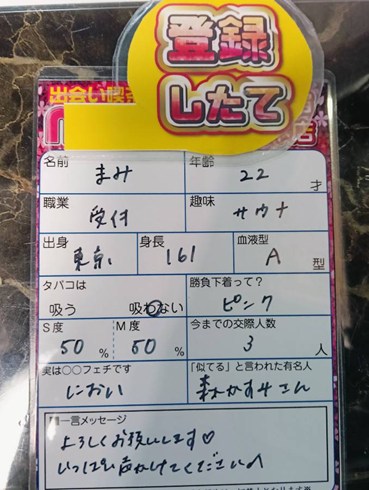 登録
したて
出会い喫茶
店
名前 まみ 年齢 22 才
職業 受付 趣味 サウナ
出身 東京 身長 161 血液型 A 型
タバコは 吸う 吸わない 勝負下着って? ピンク
S度 50 % M度 50 % 今までの交際人数 3 人
実は○○フェチです におい 「似てる」と言われた有名人 森かすみさん
一言メッセージ
よろしくお願いします♡
いっぱい声かけてください♪